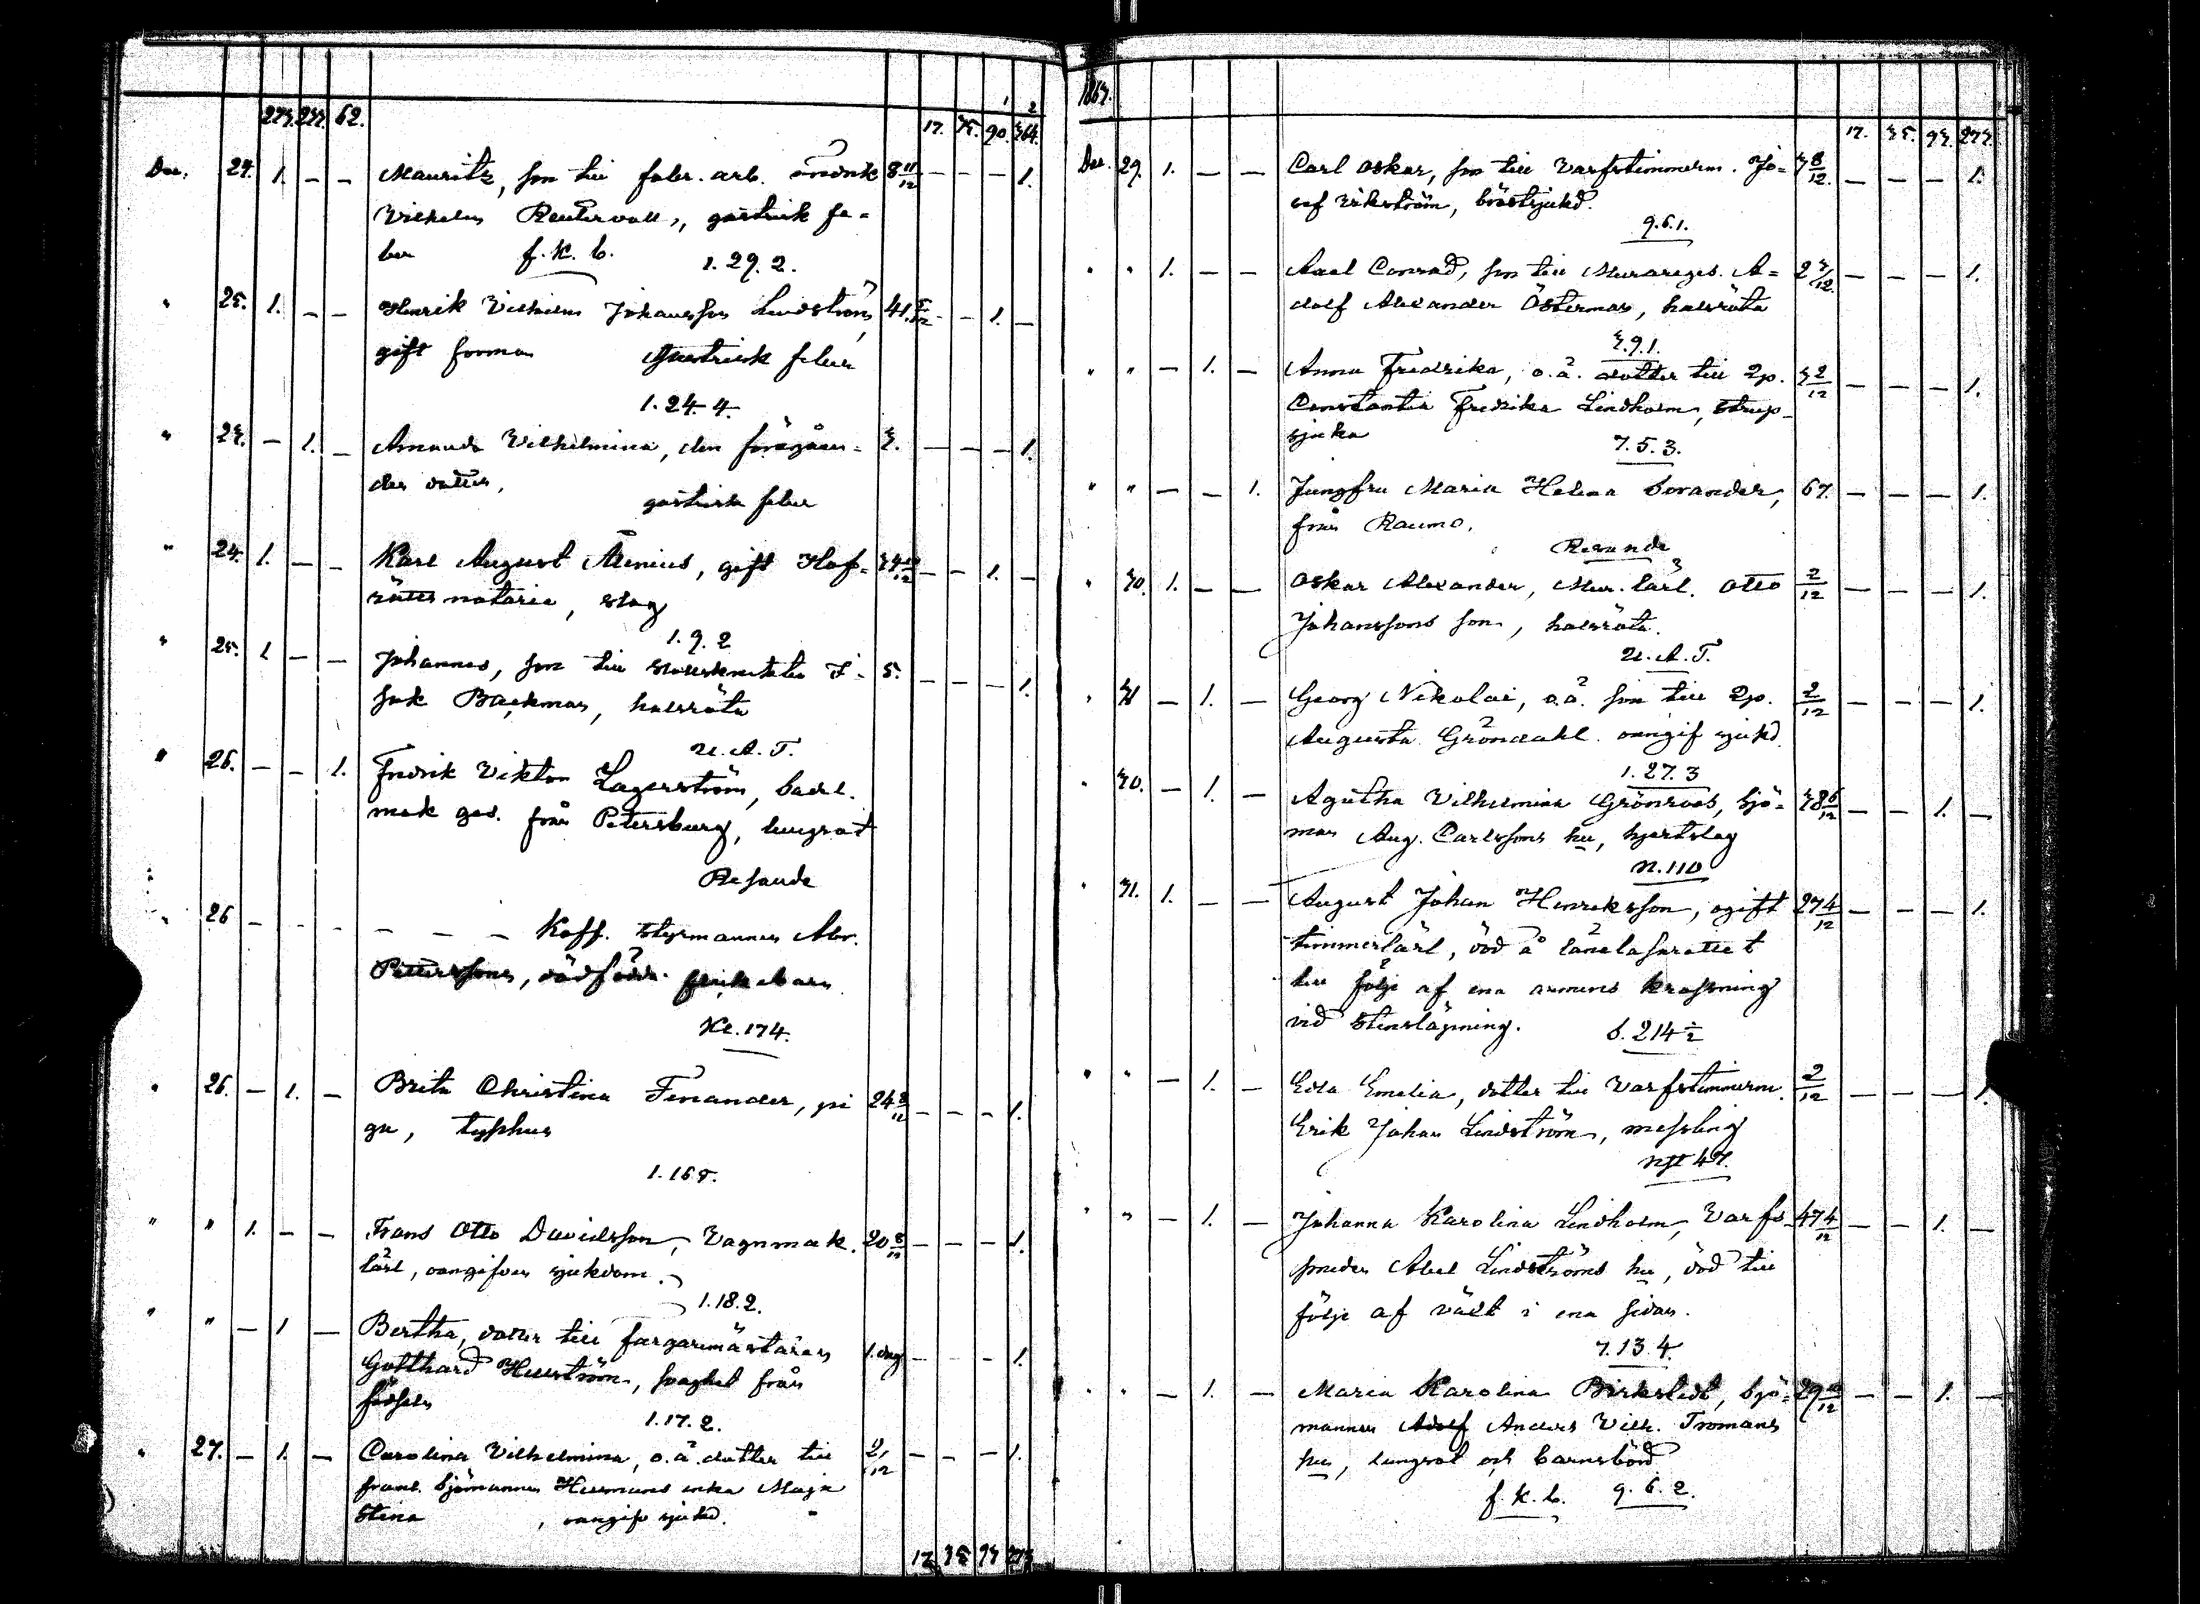 62.
17. 75. 90. 364.
Dec. 24. 1. — — Mauritz, son till fabr. arb. Fredrik 8 11/12 — — — 1.
Vilhelm Reutervall, gastrisk fe-
ber f. K. b. 1. 29. 2.
" 25. 1. — — Henrik Vilhelm Johansson Lindström, 41. — — 1. —
gift forman Gastrisk feber
1. 24. 4.
" — 1. — Amanda Vilhelmina, den föregåen- — — — 1.
des dotter,
gastrisk feber
" 24. 1. — — Karl August Alenius, gift Hof- — — 1. —
rätts notarie, slag
1. 9. 2
" 25. 1. — — Johannes, son till I- 5. — — — 1.
sak Backman, halsröta
U. A. T.
" 26. — — 1. Fredrik Viktor Lagerström,
mak ges. från Petersburg, lungsot
Resande
" 26 — — — Koff. styrmannen Abr.
Petterssons, dödfödda flickebarn
Kl. 174.
" 26. — 1. — Brita Christina Finander, pi 24 8/12 — — — 1.
ga, typhus
1. 168.
" " 1. — — Frans Otto Davidsson, Vagnmak. 20 8/12 — — — 1.
lärl, oangifven sjukdom.
1. 18. 2.
" " — 1 — Bertha, dotter till färgaremästaren 1. dag — — — 1.
Gotthard Hellström, svaghet från
födseln
1. 17. 2.
" 27. — 1. — Carolina Vilhelmina, o. ä. dotter till 2/12 — — — 1.
framl. Sjömannen Hermans enka Maja
Stina , oangif sjukd.
17 35 93 273
1867.
17. 35. 93. 273.
Dec. 29. 1. — — Carl Oskar, son till Varfstimmerm. Jo- 3 8/12. — — — 1.
sef Vikström, bröstsjukd.
9. 6. 1.
" " 1. — — Axel Conrad, son till Murareges. A- 2 3/12. — — — 1.
dolf Alexander Österman, halsröta
3. 9. 1.
" " — 1. — Anna Fredrika, o. ä. dotter till 2p. 3 2/12 — — — 1.
Constantia Fredrika Lindholm, strup-
sjuka 7. 5. 3.
" " — — 1. Jungfru Maria Helena Sorander, 67. — — — 1.
från Raumo.
Resande
" 30. 1. — — Oskar Alexander, Mur. lärl. Otto 2/12 — — — 1.
Johanssons son, halsröta.
U. A. T.
" 31 — 1. — Georg Nikolai, o. ä. son till 2p. 2/12 — — — 1.
Augusta Gröndahl. oangif sjukd.
1. 27. 3
" 30. — 1. — Agatha Vilhelmina Grönroos, Sjö- 38 6/12 — — 1. —
man Aug. Carlssons hu, hjertslag
N. 110
" 31. 1. — — August Johan Henriksson, ogift 27 4/12 — — — 1.
timmerlärl, död å länelasarettet
till följe af ena armens krossning
vid stensläpning. S. 214 ½
" " — 1. — Eda Emelia, dotter till Varfstimmerm. 2/12 — — — 1.
Erik Johan Lindström, messling
47.
" " — 1. — Johanna Karolina Lindholm, Varfs- 47 4/12 — — 1. —
smeden Abel Lindströms hu, död till
följe af värk i ena sidan.
7. 13. 4.
" " — 1. — Maria Karolina Birkstedt, Sjö- 29 10/12 — — 1. —
mannen Adolf Anders Vilh. Tromans
hu, lungsot och barnsbörd
f. K. b. 9. 6. 2.